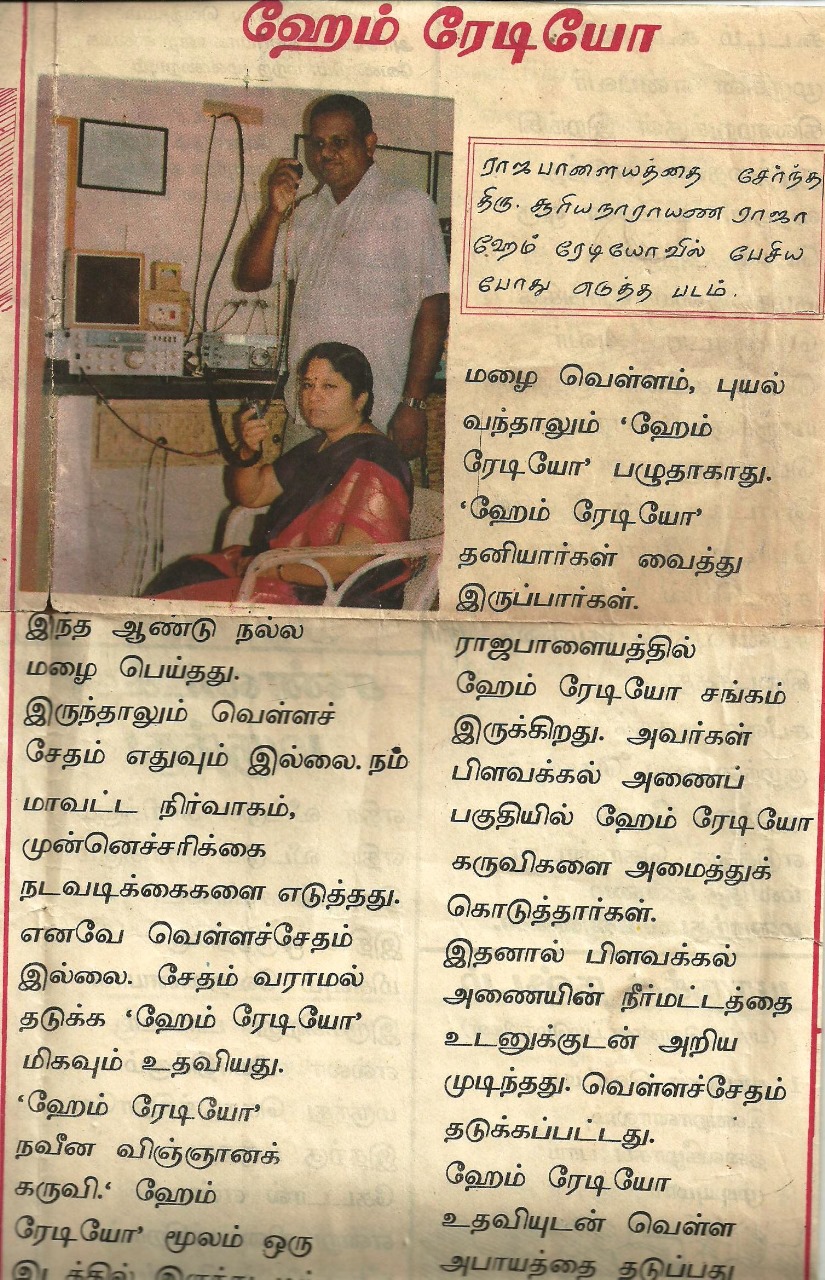 ஹேம் ரேடியோ
ராஜபாளையத்தை சேர்ந்த
திரு. சூரியநாராயண ராஜா
ஹேம் ரேடியோவில் பேசிய
போது எடுத்த படம்.
இந்த ஆண்டு நல்ல
மழை பெய்தது.
இருந்தாலும் வெள்ளச்
சேதம் எதுவும் இல்லை. நம்
மாவட்ட நிர்வாகம்,
முன்னெச்சரிக்கை
நடவடிக்கைகளை எடுத்தது.
எனவே வெள்ளச்சேதம்
இல்லை. சேதம் வராமல்
தடுக்க ‘ஹேம் ரேடியோ’
மிகவும் உதவியது.
‘ஹேம் ரேடியோ’
நவீன விஞ்ஞானக்
கருவி.‘ ஹேம்
ரேடியோ’ மூலம் ஒரு
மழை வெள்ளம், புயல்
வந்தாலும் ‘ஹேம்
ரேடியோ’ பழுதாகாது.
‘ஹேம் ரேடியோ’
தனியார்கள் வைத்து
இருப்பார்கள்.
ராஜபாளையத்தில்
ஹேம் ரேடியோ சங்கம்
இருக்கிறது. அவர்கள்
பிளவக்கல் அணைப்
பகுதியில் ஹேம் ரேடியோ
கருவிகளை அமைத்துக்
கொடுத்தார்கள்.
இதனால் பிளவக்கல்
அணையின் நீர்மட்டத்தை
உடனுக்குடன் அறிய
முடிந்தது. வெள்ளச்சேதம்
தடுக்கப்பட்டது.
ஹேம் ரேடியோ
உதவியுடன் வெள்ள
அபாயத்தை தடுப்பது